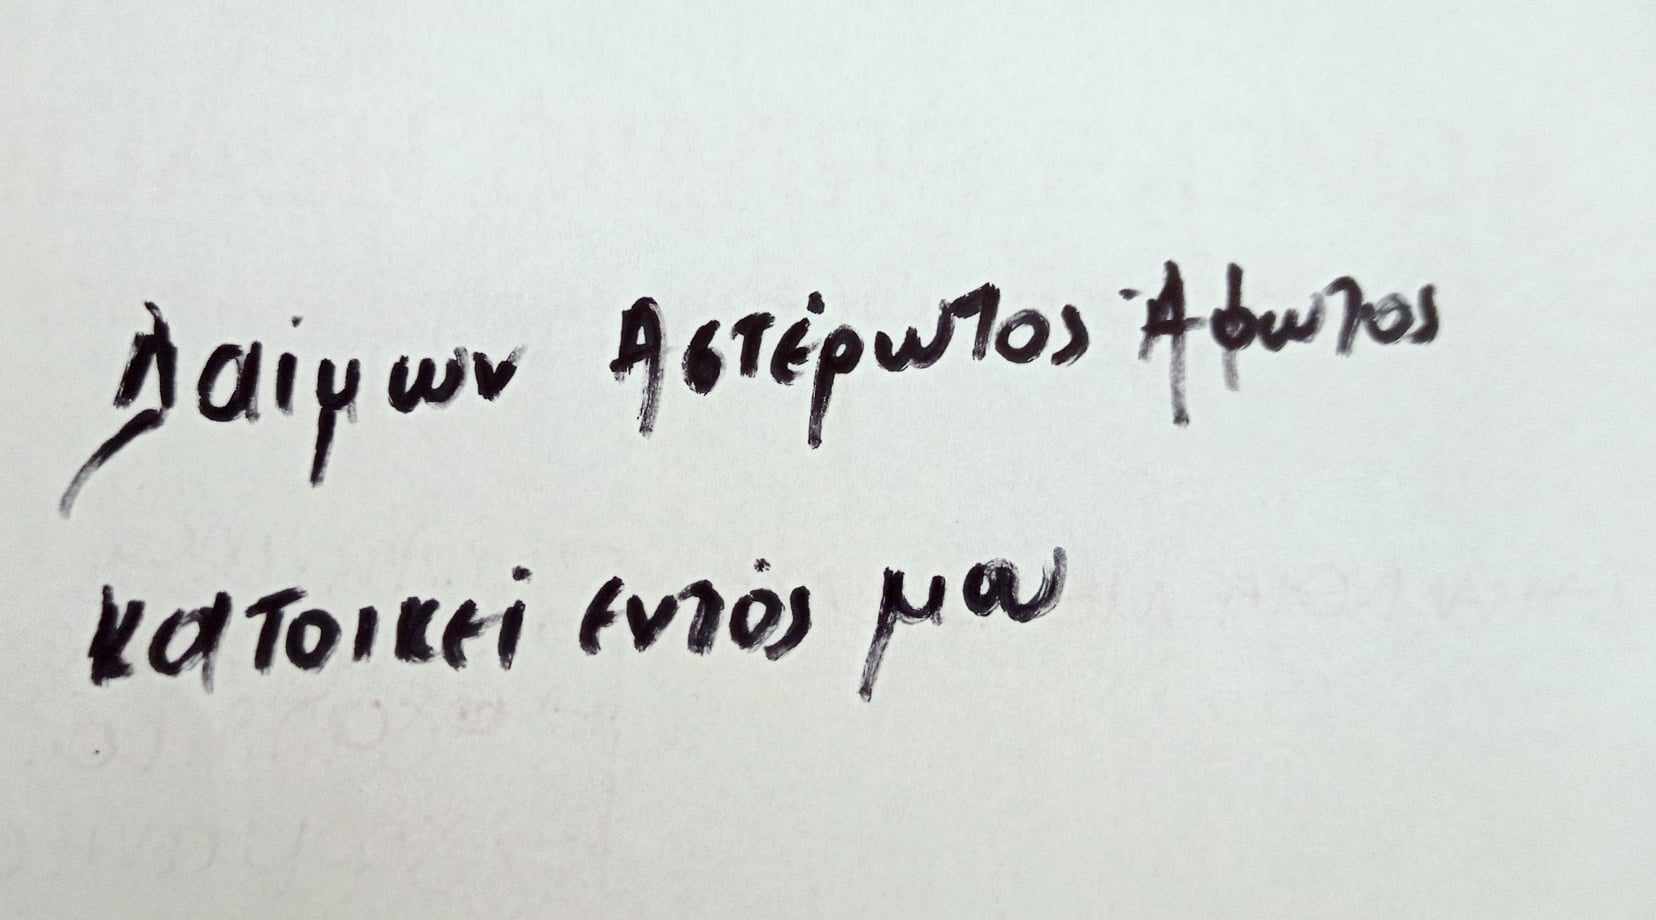 Δαίμων Αστέρωτος Άφωτος
κατοικεί εντός μου